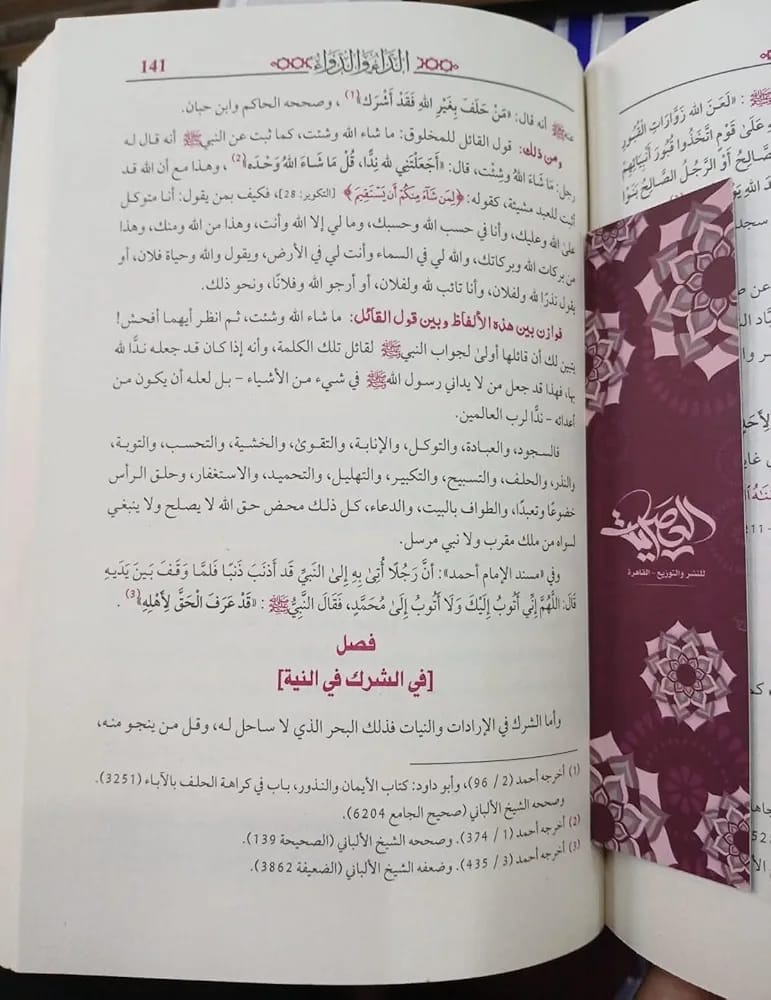 الداء والدواء
141
عنه ﷺ أنه قال: «مَنْ حَلَفَ بِغَيْرِ اللهِ فَقَدْ أَشْرَك»(1)، وصححه الحاكم وابن حبان.
ومن ذلك: قول القائل للمخلوق: ما شاء الله وشئت، كما ثبت عن النبي ﷺ أنه قال له
رجل: مَا شَاءَ اللهُ وشِئْت، قال: «أَجَعَلْتَنِي لله نِدًّا، قُلْ مَا شَاءَ اللهُ وَحْدَه»(2)، وهذا مع أن الله قد
أثبت للعبد مشيئة، كقوله: ﴿لِمَن شَآءَ مِنكُمْ أَن يَسْتَقِيمَ﴾ [التكوير: 28]، فكيف بمن يقول: أنا متوكل
على الله وعليك، وأنا في حسب الله وحسبك، وما لي إلا الله وأنت، وهذا من الله ومنك، وهذا
من بركات الله وبركاتك، والله لي في السماء وأنت لي في الأرض، ويقول والله وحياة فلان، أو
يقول نذرًا لله ولفلان، وأنا تائب لله ولفلان، أو أرجو الله وفلانًا، ونحو ذلك.
فوازن بين هذه الألفاظ وبين قول القائل: ما شاء الله وشئت، ثم انظر أيهما أفحش!
يتبين لك أن قائلها أولى لجواب النبي ﷺ لقائل تلك الكلمة، وأنه إذا كان قد جعله ندًّا لله
بها، فهذا قد جعل من لا يداني رسول الله ﷺ في شيء من الأشياء – بل لعله أن يكون من
أعدائه – ندًّا لرب العالمين.
فالسجود، والعبادة، والتوكل، والإنابة، والتقوى، والخشية، والتحسب، والتوبة،
والنذر، والحلف، والتسبيح، والتكبير، والتهليل، والتحميد، والاستغفار، وحلق الرأس
خضوعًا وتعبدًا، والطواف بالبيت، والدعاء، كل ذلك محض حق الله لا يصلح ولا ينبغي
لسواه من ملك مقرب ولا نبي مرسل.
وفي «مسند الإمام أحمد»: أَنَّ رَجُلًا أُتِىَ بِهِ إِلَى النَّبِيِّ قَد أَذْنَبَ ذَنبًا فَلمَّا وَقَفَ بَينَ يَدَيهِ
قَالَ: اللَّهُمَّ إِنِّي أَتُوبُ إِلَيْكَ وَلَا أَتُوبُ إِلَىٰ مُحَمَّدٍ، فَقَالَ النَّبِيُّ ﷺ: «قَدْ عَرَفَ الْحَقَّ لِأَهْلِهِ»(3).
فصل
[في الشرك في النية]
وأما الشرك في الإرادات والنيات فذلك البحر الذي لا ساحل له، وقل من ينجو منه،
(1) أخرجه أحمد (2 / 96)، وأبو داود: كتاب الأيمان والنذور، باب في كراهة الحلف بالآباء (3251).
وصححه الشيخ الألباني (صحيح الجامع 6204).
(2) أخرجه أحمد (1 / 374). وصححه الشيخ الألباني (الصحيحة 139).
(3) أخرجه أحمد (3 / 435). وضعفه الشيخ الألباني (الضعيفة 3862).
ﷺ: «لَعَنَ الله زَوَّارَاتِ القُبُورِ
عَلَىٰ قَوْمٍ اتَّخَذُوا قُبُورَ أَنْبِيَائِهِمْ
الصَّالِحُ أَوْ الرَّجُلُ الصَّالِحُ بَنَوْا
للنشر والتوزيع - القاهرة